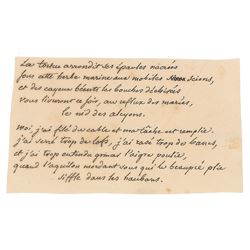 Las tortue arrondit ses épaules nacrées
sous cette herbe marine aux mobiles scions,
et des cayeux béants les bouches déchirées
vous livreront ce soir, au reflux des marées,
le nid des alcyons.
Moi, j'ai filé du cable et ma tâche est remplie.
j'ai serré trop de lofs, j'ai rasé trop de bancs,
et j'ai trop entendu grincer l'aigre poulie,
quand l'aquilon mordant sous qui le beaupré plie
siffle dans les haubans.